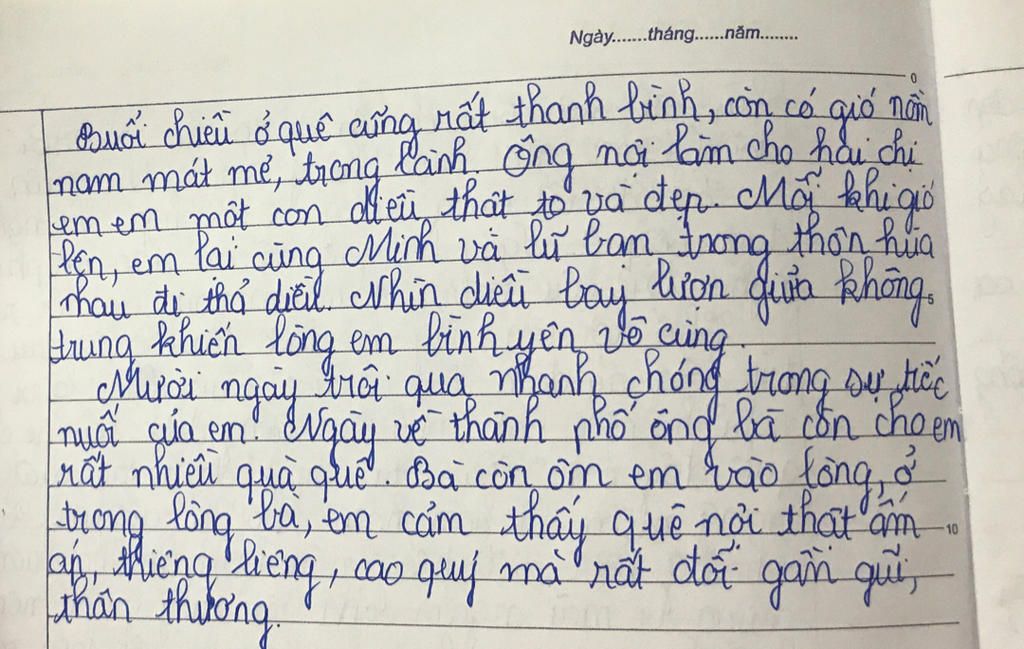 Ngày.......tháng......năm........
0
Buổi chiều ở quê cũng rất thanh bình, còn có gió nồm
nam mát mẻ, trong lành. Ông nội làm cho hai chị
em em một con diều thật to và đẹp. Mỗi khi gió
lên, em lại cùng Minh và lũ bạn trong thôn hùa
nhau đi thả diều. Nhìn diều bay lượn giữa không
trung khiến lòng em bình yên vô cùng.
Mười ngày trôi qua nhanh chóng trong sự tiếc
nuối của em. Ngày về thành phố ông bà còn cho em
rất nhiều quà quê. Bà còn ôm em vào lòng, ở
trong lòng bà, em cảm thấy quê nội thật ấm
10
áp, thiêng liêng, cao quý mà rất đỗi gần gũi,
thân thương.